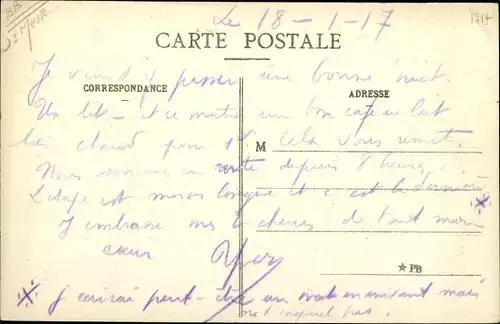 Le 18-1-17
CARTE POSTALE
CORRESPONDANCE
ADRESSE
M
Je viens d'y passer une bonne nuit.
Un lit - et ce matin un bon café au lait
bien chaud pour 1f. Cela vous remet.
Nous sommes en route depuis 8 heures.
L'étape est moins longue et c'est la dernière
J'embrasse mes chéries de tout mon
cœur
★PB
J'écrirai peut-être en arrivant mais